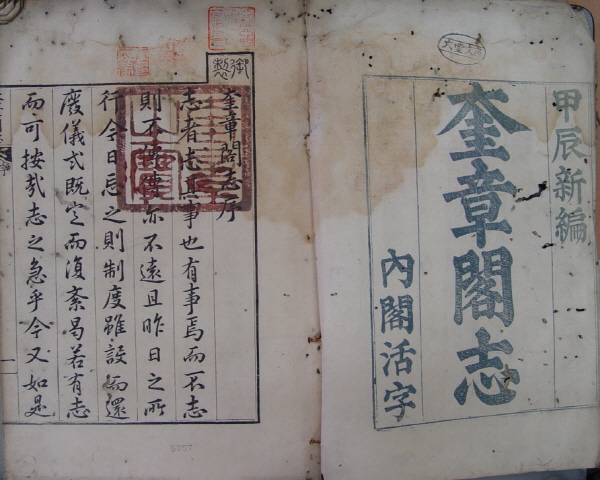 甲辰新編
奎章閣志
內閣活字
御製
奎章閣志序
志者志其事也有事焉而不志
則不亦不遠且昨日之所
行今日忘之則制度雖設而還
廢儀式既定而復紊曷若有志
而可按哉志之急乎今又如是